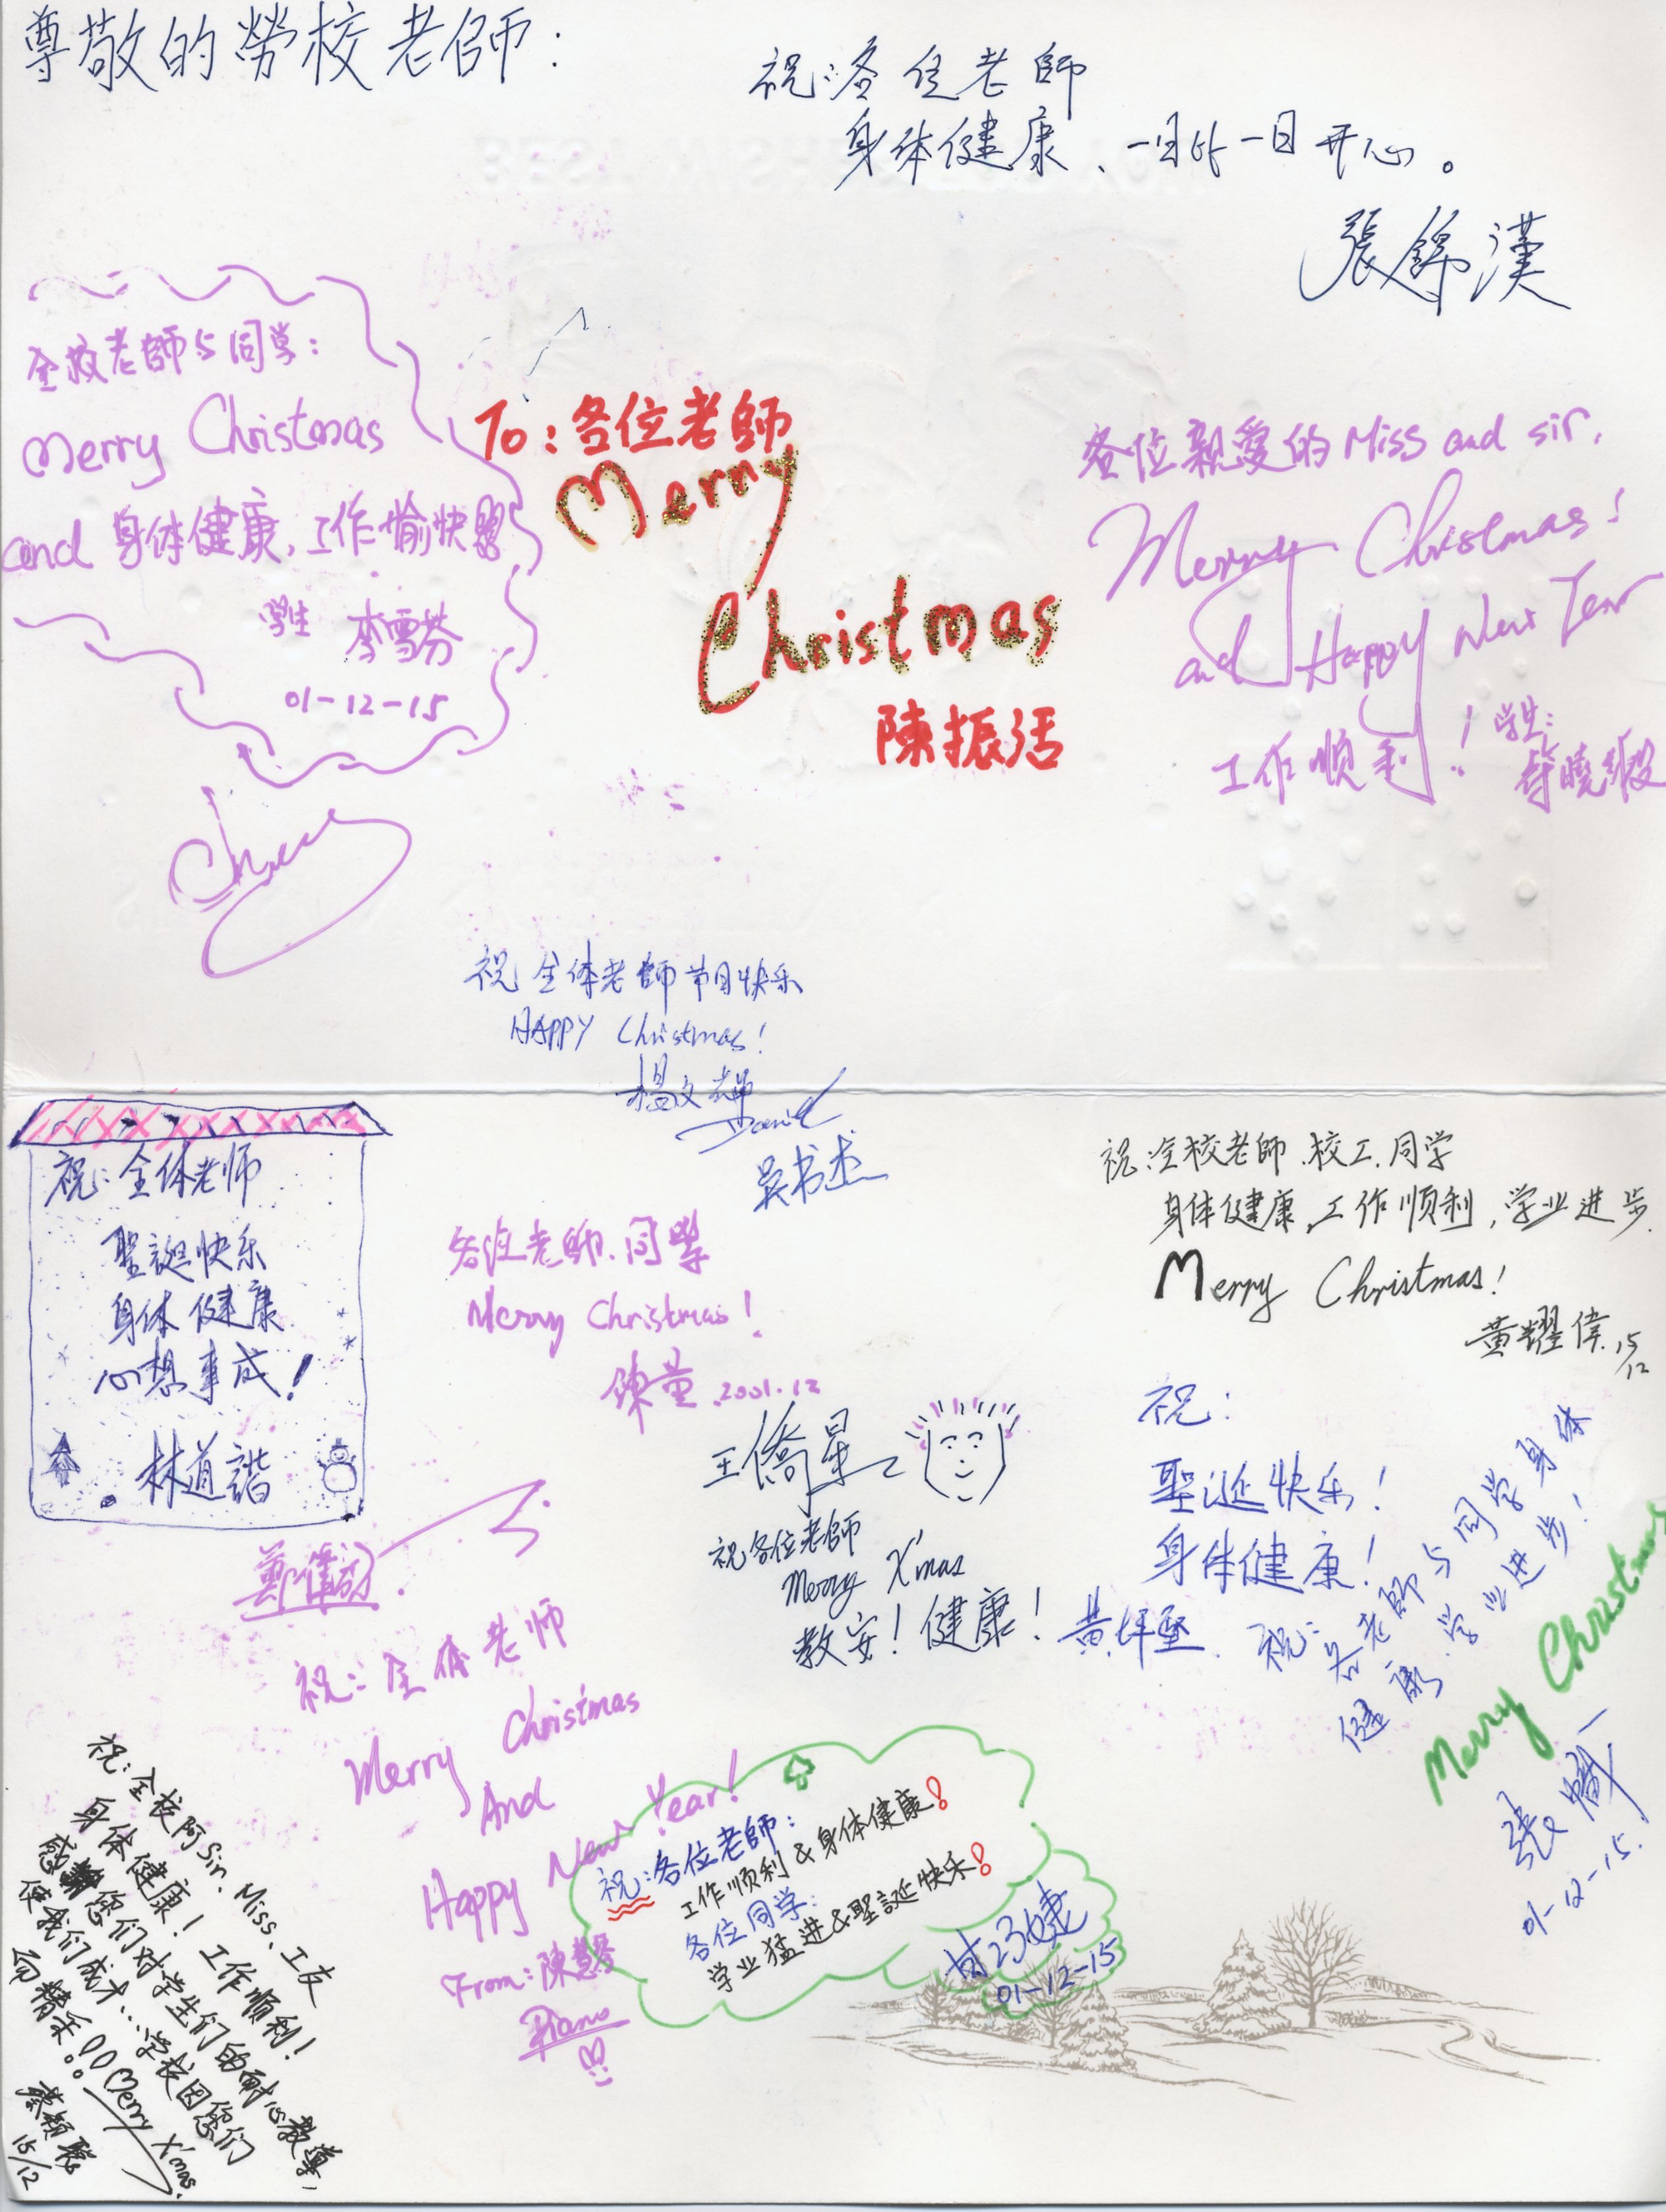 尊敬的勞校老師：
祝：各位老師
身体健康、一日比一日开心。
張錦漢
全校老師与同学：
Merry Christmas
and 身体健康, 工作愉快
学生 李雪芬
01-12-15
To：各位老師
Merry
Christmas
陳振活
各位親愛的 Miss and sir,
Merry Christmas!
and Happy New Year
工作顺利！
学生：
祝全体老師节日快乐
HAPPY Christmas!
楊文輝
Daniel
吴书杰
祝：全体老师
聖誕快乐
身体健康
心想事成！
林道諧
各位老師、同學
Merry Christmas!
陳萱 2001.12
祝：全校老師、校工、同学
身体健康，工作顺利，学业进步
Merry Christmas!
黄耀偉 15/12
王僑星
祝各位老師
Merry X'mas
教安！健康！
祝：
聖诞快乐！
身体健康！
黄坪垩
祝：各老師与同学身体
健康，学业进步！
Merry Christmas
張
01-12-15.
鄭偉
祝：全体老师
Merry Christmas
And
Happy New Year!
From：陳慧琴
Diano
祝：各位老師：
工作顺利 & 身体健康！
各位同学：
学业猛进 & 聖誕快乐！
甘子婕
01-12-15
祝：全校阿Sir、Miss、工友
身体健康！工作顺利！
感謝您们对学生们的耐心教導，
使我们成才…学校因您们
而精采!! Merry X'mas.
蔡頴聰
15/12